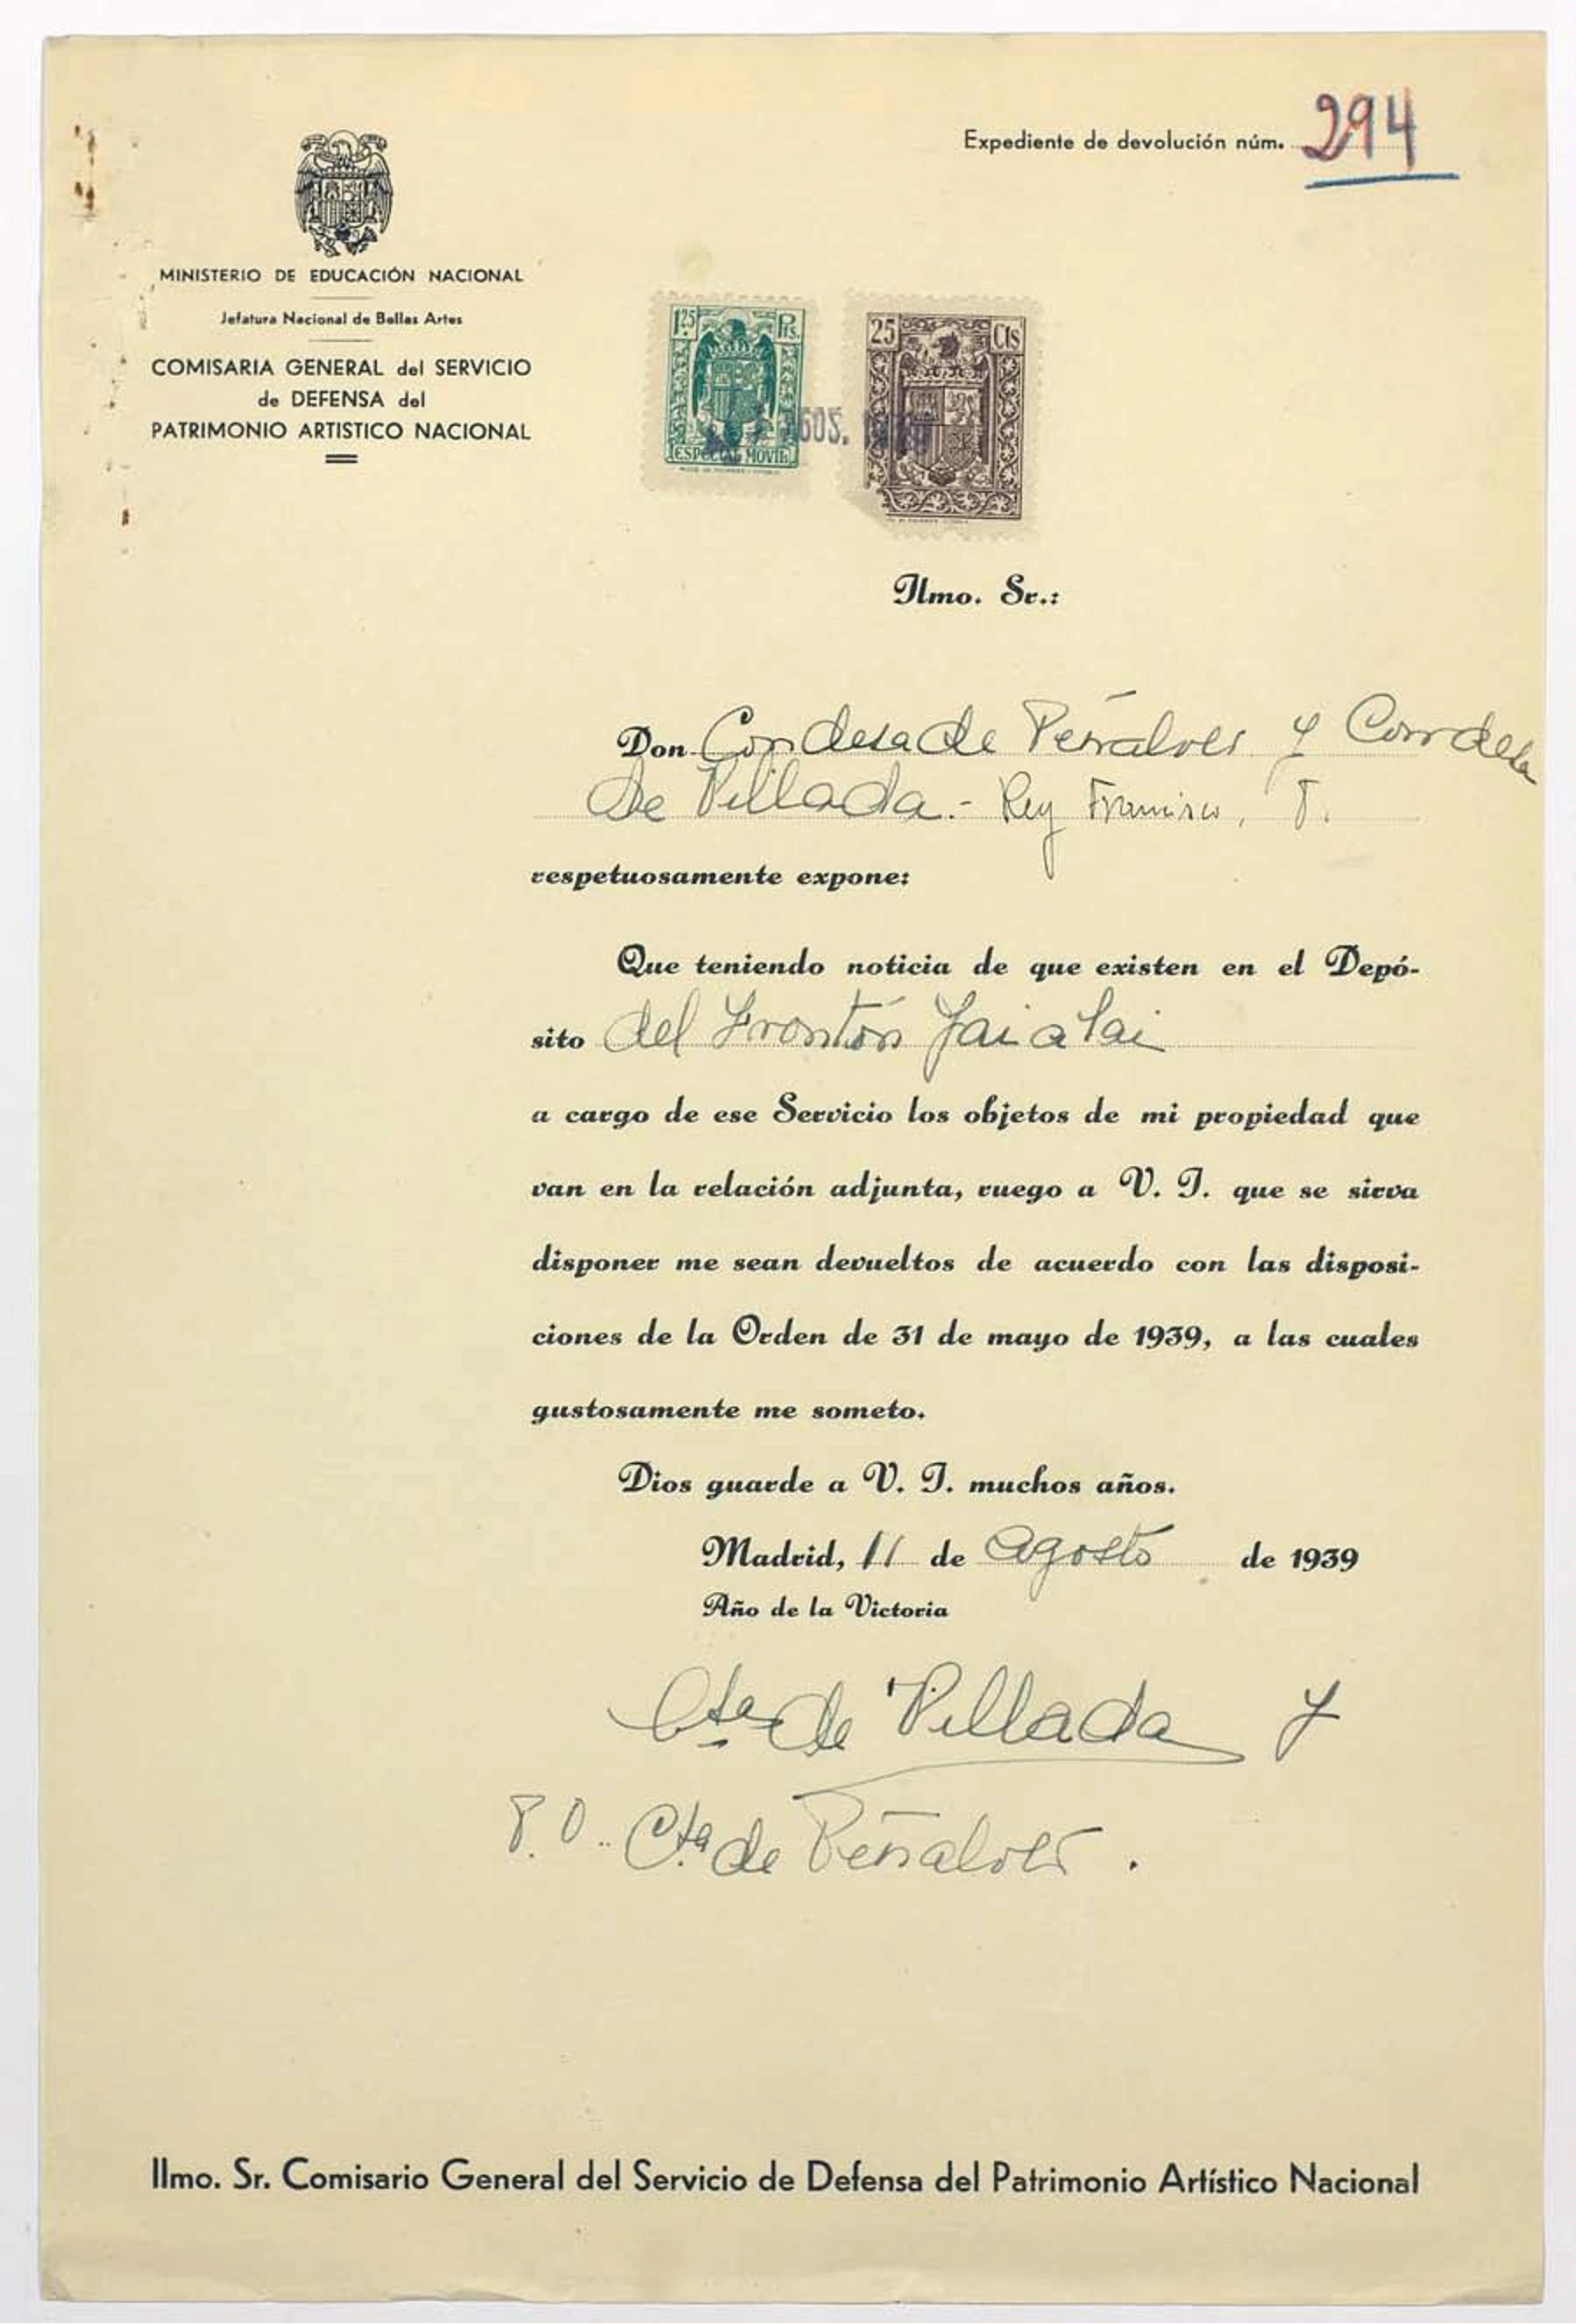 Expediente de devolución núm. 294
MINISTERIO DE EDUCACIÓN NACIONAL
Jefatura Nacional de Bellas Artes
COMISARIA GENERAL del SERVICIO
de DEFENSA del
PATRIMONIO ARTISTICO NACIONAL
1'25 Pts.
ESPECIAL MOVIL
25 Cts
AGOS.
Ilmo. Sr.:
Don Condesa de Peñalver y Condesa
de Villada.- Rey Francisco, 8.
respetuosamente expone:
Que teniendo noticia de que existen en el Depó-
sito del Frontón Jai alai
a cargo de ese Servicio los objetos de mi propiedad que
van en la relación adjunta, ruego a V. I. que se sirva
disponer me sean devueltos de acuerdo con las disposi-
ciones de la Orden de 31 de mayo de 1939, a las cuales
gustosamente me someto.
Dios guarde a V. I. muchos años.
Madrid, 11 de Agosto de 1939
Año de la Victoria
Cta de Villada y
P.O. Cta de Peñalver.
Ilmo. Sr. Comisario General del Servicio de Defensa del Patrimonio Artístico Nacional